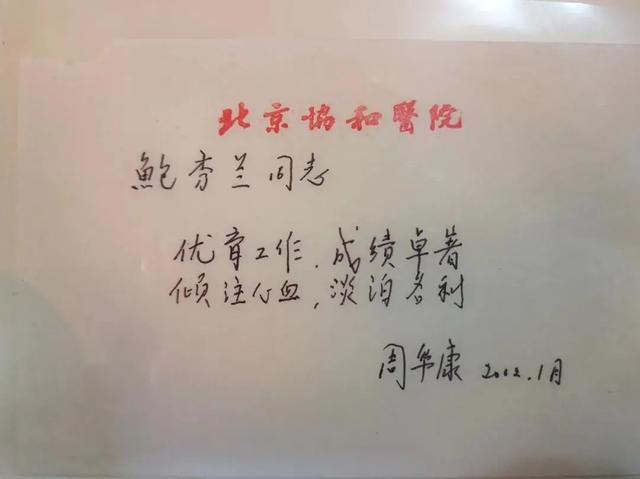 北京協和醫院
鲍秀兰同志
优育工作，成绩卓著
倾注心血，淡泊名利
周华康 2002.1月